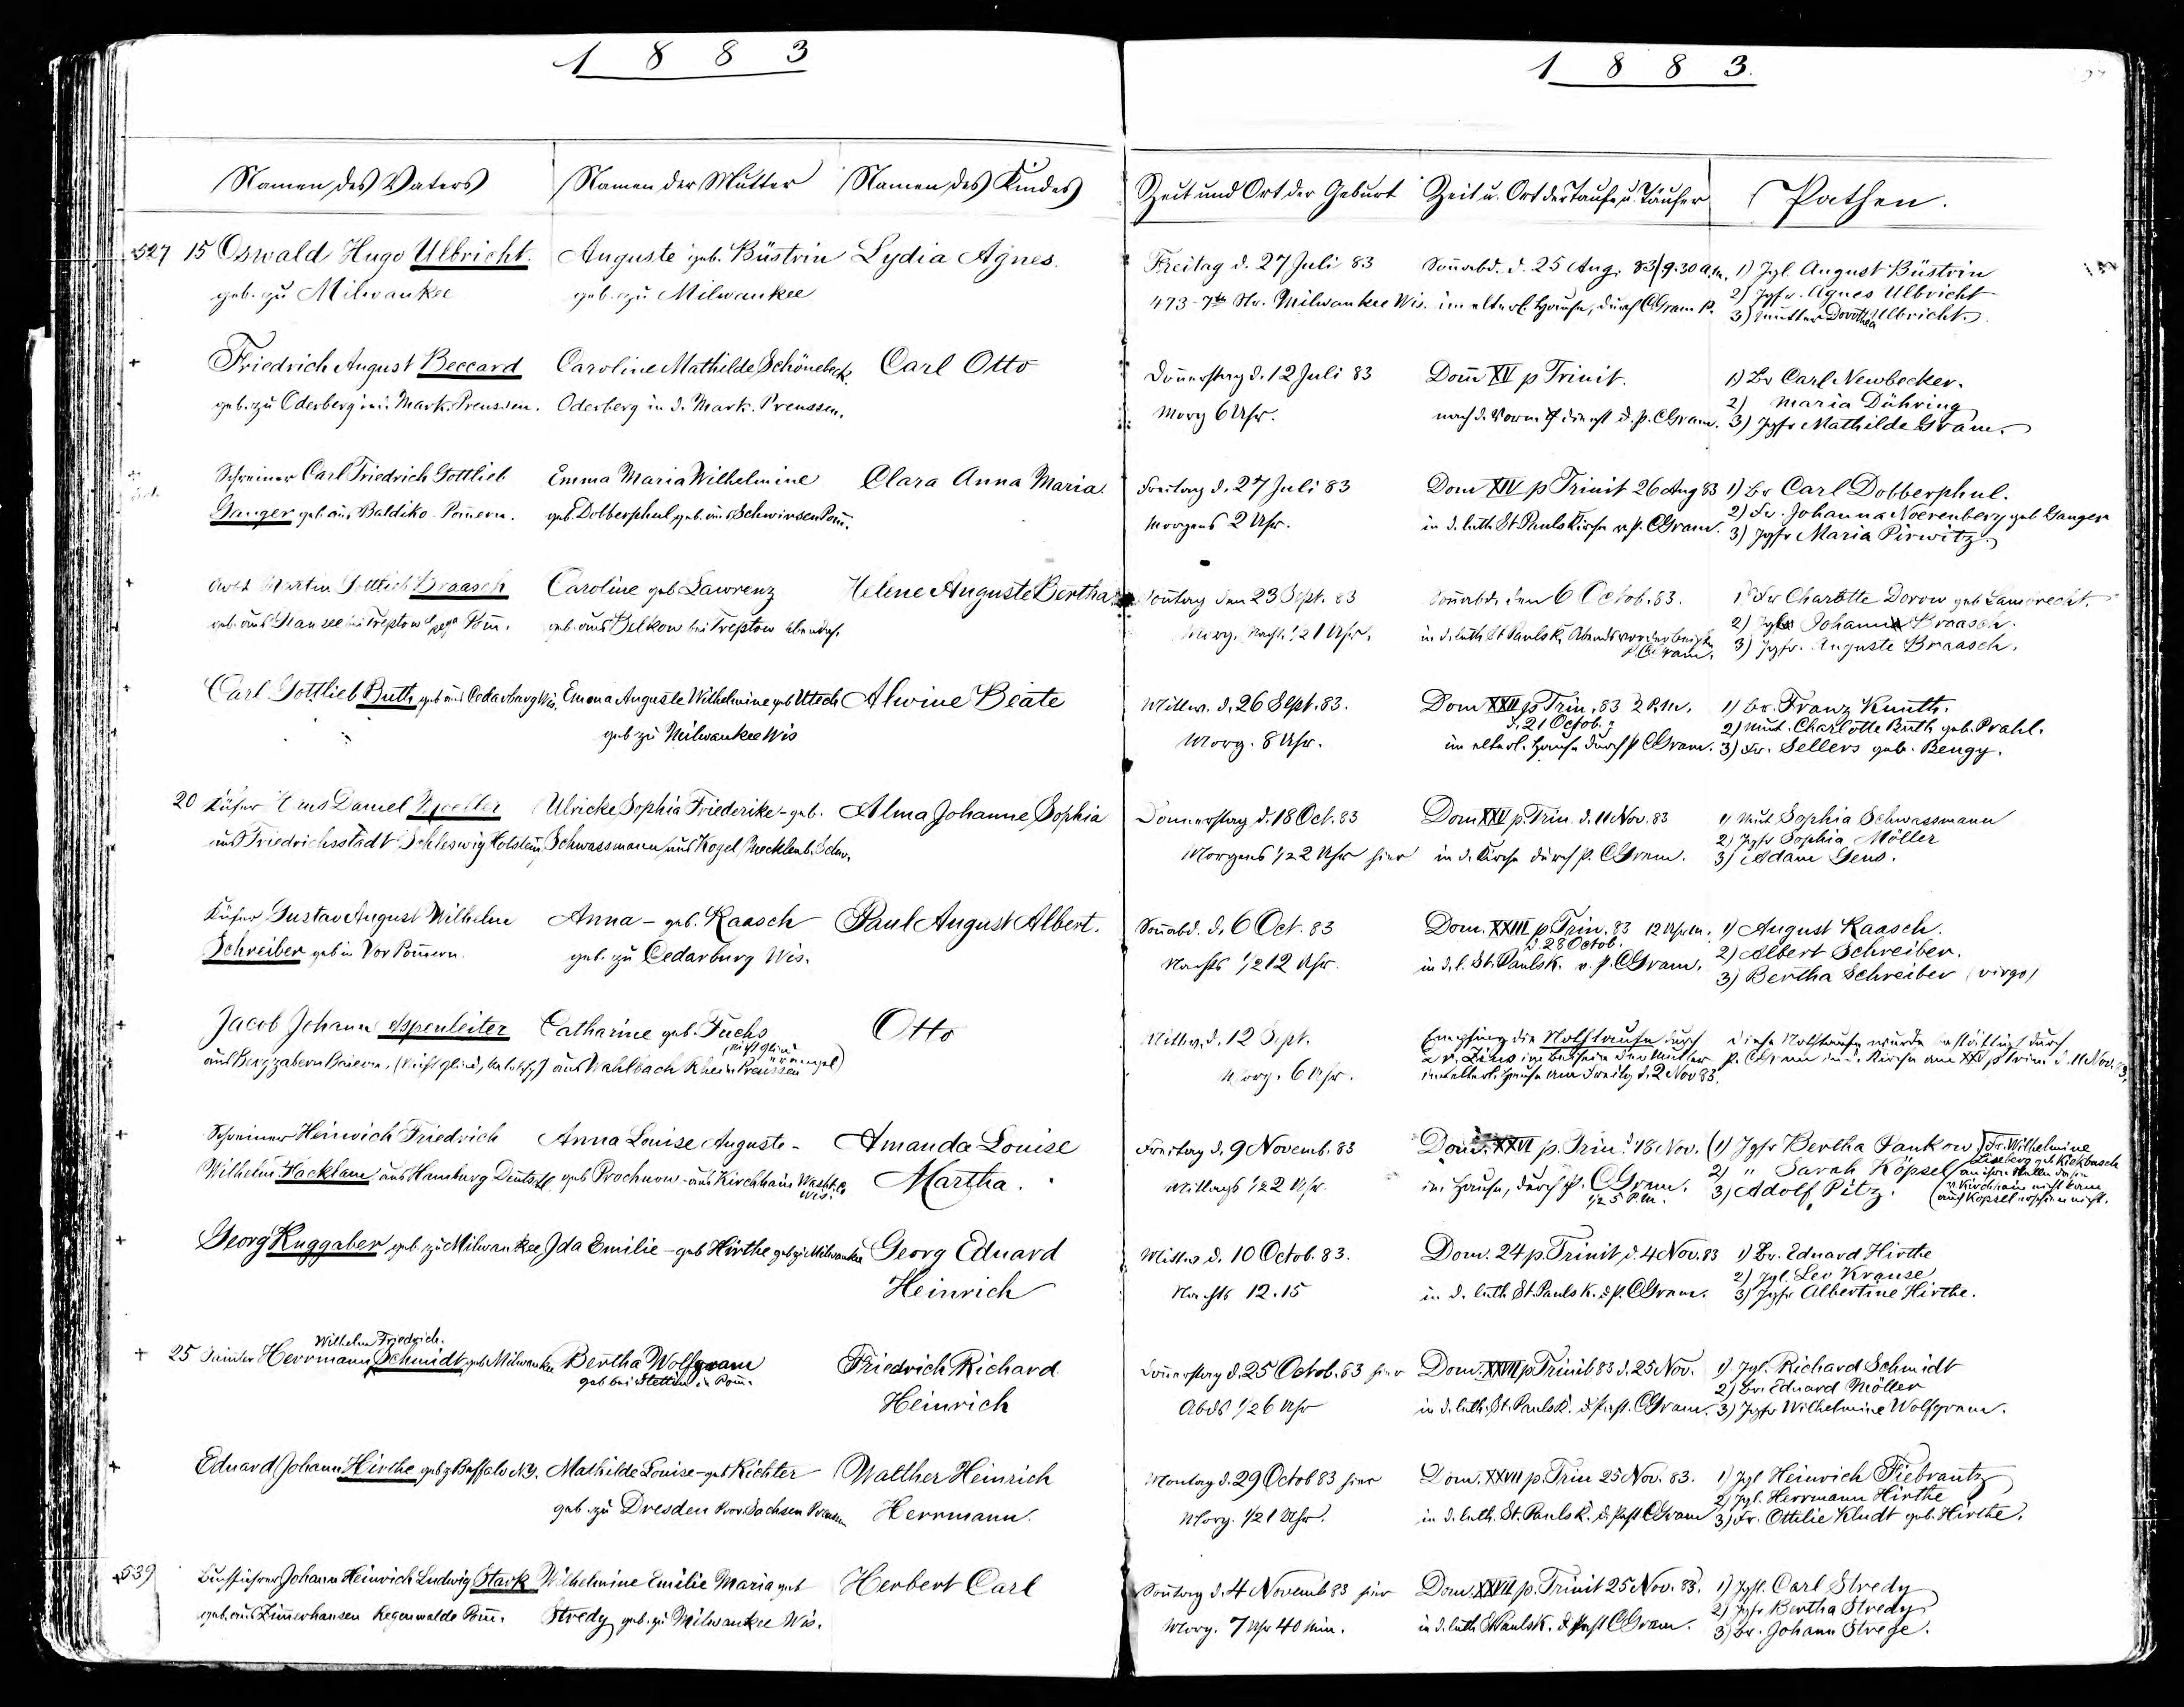 1883
1883.
Namen des Vaters
Namen der Mutter
Namen des Kindes
Zeit und Ort der Geburt
Zeit u. Ort der Taufe u. Täufer
Pathen.
527 15 Oswald Hugo Ulbricht.
geb. zu Milwaukee
Auguste geb. Büstrin
geb. zu Milwaukee
Lydia Agnes.
Freitag d. 27 Juli 83
473-7te Str. Milwaukee Wis.
Sonnabd. d. 25 Aug. 83/9.30 a.m.
im elterl. Hause, durch CGram P.
1) Jgl. August Büstrin
2) Jgfr. Agnes Ulbricht
3) Mutter Dorothea Ulbricht.
+ Friedrich August Beccard
geb. zu Oderberg in d. Mark. Preussen.
Caroline Mathilde Schönebeck.
Oderberg in d. Mark. Preussen.
Carl Otto
Donnerstag d. 12 Juli 83
Morg 6 Uhr.
Dom XV p Trinit.
nach d. Vorm. dienst d. p. CGram.
1) Hr Carl Newbecker.
2) Maria Dühring
3) Jgfr Mathilde Gram.
Schreiner Carl Friedrich Gottlieb
Ganger geb aus Baldiko Pomern.
Emma Maria Wilhelmine
geb. Dobberphul geb. aus Schwirsen Pom.
Clara Anna Maria.
Freitag d. 27 Juli 83
Morgens 2 Uhr.
Dom XIV p Trinit 26 Aug 83
in d. luth St. Pauls Kirche v. p. CGram.
1) Hr Carl Dobberphul.
2) Fr. Johanna Noerenberg geb Ganger
3) Jgfr Maria Pirwitz.
+ Martin Gottlieb Braasch
Caroline geb Lawrenz
geb. aus Belkow bei Treptow
Helene Auguste Bertha
Sontag den 23 Sept. 83
Nachts ½1 Uhr.
Sonnabd. den 6 Octob. 83.
in d. luth St Pauls K. Abends vor der Beichte
p. CGram.
1) Fr Charlotte Dorow geb Lambrecht.
2) Johann Braasch.
3) Jgfr. Auguste Braasch.
+ Carl Gottlieb Buth geb aus Cedarburg Wis.
Emma Auguste Wilhelmine geb Utech
geb zu Milwaukee Wis
Alwine Beate
Mittw. d. 26 Sept. 83.
Morg. 8 Uhr.
Dom XXII p Trin. 83 2 P.M.
d. 21 Octob.
im elterl. Hause durch p CGram.
1) Hr. Franz Knuth.
2) Mut. Charlotte Buth geb. Prahl.
3) Fr. Sellers geb. Bengy.
20 Küfer Daniel Moeller
aus Friedrichsstadt Schleswig Holstein
Ulricke Sophia Friederike - geb.
Schwassmann aus Kogel Mecklenb. Schw.
Alma Johanne Sophia
Donnerstag d. 18 Oct. 83
Morgens ½2 Uhr hier
Dom XXV p. Trin. d. 11 Nov. 83
in d. Kirche durch p. CGram.
1) Mut Sophia Schwassmann
2) Jgfr Sophia Möller
3) Adam Gens.
Küfer Gustav August Wilhelm
Schreiber geb in Vor Pomern.
Anna - geb. Raasch
geb. zu Cedarburg Wis.
Paul August Albert.
Sonabd. d. 6 Oct. 83
Nachts ½12 Uhr.
Dom. XXIII p Trin. 83
d 28 Octob.
in d. l. St. Pauls K. v. p. CGram.
1) August Raasch.
2) Albert Schreiber.
3) Bertha Schreiber (virgo)
+ Jacob Johann Aspenleiter
aus Bergzabern Baiern,
Catharine geb. Fuchs
aus Wahlbach Rhein Preussen
Otto
Mittw. d. 12 Sept.
Morg. 6 Uhr.
Empfing die Nothtaufe durch
im elterl. Hause am Freitg d. 2 Nov 83.
diese Nothtaufe wurde bestätigt durch
p. CGram in d. Kirche am XXV p Trin. d. 11 Nov. 83.
+ Schreiner Heinrich Friedrich
Wilhelm Hacklam aus Hamburg Deutschl.
Anna Louise Auguste -
geb Prochnow aus Kirchhain Washt. Co
Wis.
Amanda Louise
Martha.
Freitag d. 9 Novemb. 83
Mittags ½2 Uhr.
Dom. XXVI p. Trin. d 18 Nov.
im Hause, durch p. CGram.
½5 P.M.
1) Jgfr Bertha Pankow
2) " Sarah Köpsel
3) Adolf Pitz.
Fr. Wilhelmine
geb Kiekbusch
an ihrer Stelle
v. Kirchhain nicht kam
auch Köpsel erschien nicht.
+ Georg Kuggaber geb. zu Milwaukee
Ida Emilie - geb Hirthe geb zu Milwaukee
Georg Eduard
Heinrich
Mittw. d. 10 Octob. 83.
Nachts 12.15
Dom. 24 p. Trinit. d. 4 Nov. 83
in d. luth St. Pauls K. d p. CGram.
1) Hr. Eduard Hirthe
2) Jgl. Leo Krause
3) Jgfr Albertine Hirthe.
+ 25 Herrmann Wilhelm Friedrich. Schmidt geb Milwaukee
Bertha Wolfgram
geb bei Stettin in Pom.
Friedrich Richard
Heinrich
Donnerstag d. 25 Octob. 83 hier
Abds ½6 Uhr
Dom. XXVII p Trinit 83 d. 25 Nov.
in d. luth. St. Pauls K. d past. CGram.
1) Jgl. Richard Schmidt
2) Hr. Eduard Möller
3) Jgfr Wilhelmine Wolfgram.
+ Eduard Johann Hirthe geb z Buffalo N.Y.
Mathilde Louise - geb Richter
geb. zu Dresden Prov Sachsen Preussen
Walther Heinrich
Herrmann.
Montag d. 29 Octob 83 hier
Morg. ½1 Uhr.
Dom. XXVII p. Trin 25 Nov. 83.
in d. luth. St. Pauls K. d. past CGram
1) Jgl Heinrich Fiebrantz
2) Jgl. Herrmann Hirthe
3) Fr. Ottilie Kludt geb. Hirthe.
539 Buchführer Johann Heinrich Ludwig Stark
geb. aus Zimerhausen Regenwalde Pom.
Wilhelmine Emilie Maria geb
Stredy geb. zu Milwaukee Wis.
Herbert Carl
Sontag d. 4 Novemb 83 hier
Morg. 7 Uhr 40 Min.
Dom. XXVII p. Trinit 25 Nov. 83.
in d. luth St Pauls K. d past CGram.
1) Jgl. Carl Stredy
2) Jgfr Bertha Stredy
3) Hr. Johann Strege.